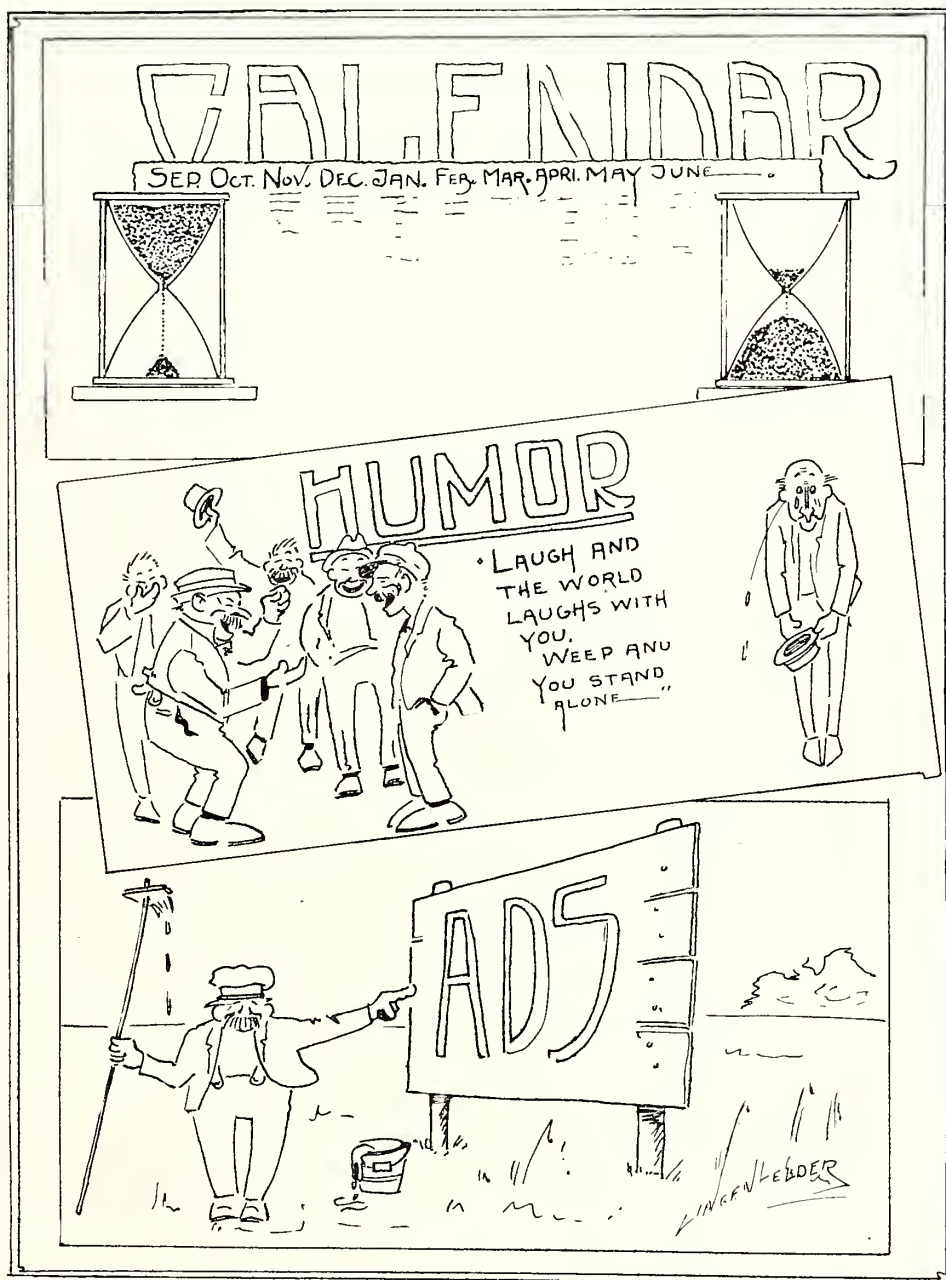 CALENDAR
SEP. OCT. NOV. DEC. JAN. FEB. MAR. APRI. MAY JUNE.
HUMOR
"LAUGH AND
THE WORLD
LAUGHS WITH
YOU.
WEEP AND
YOU STAND
ALONE—"
ADS